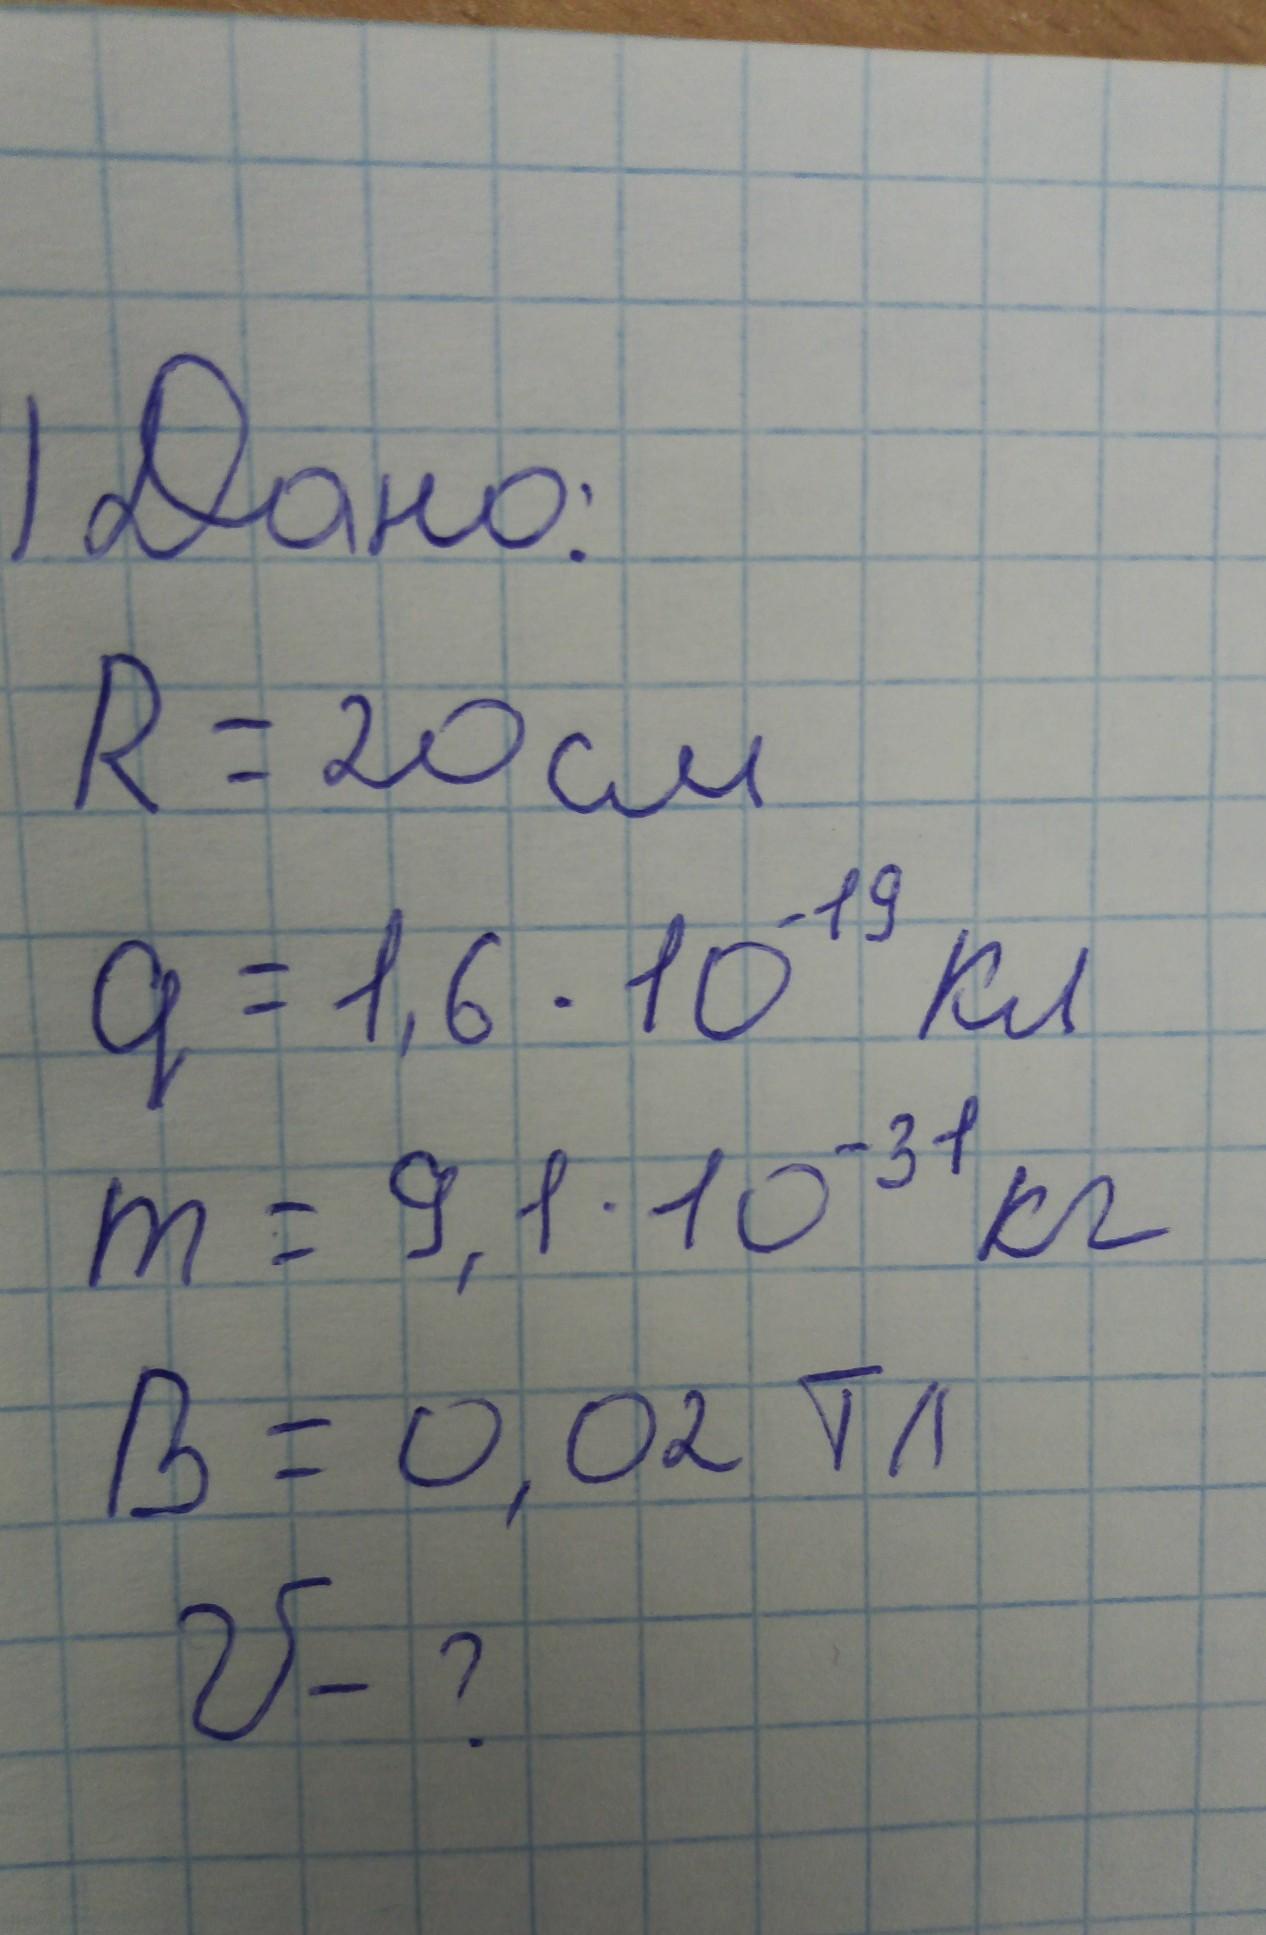 1 Дано:
R = 20 см
q = 1,6 · 10⁻¹⁹ Кл
m = 9,1 · 10⁻³¹ кг
B = 0,02 Тл
V - ?